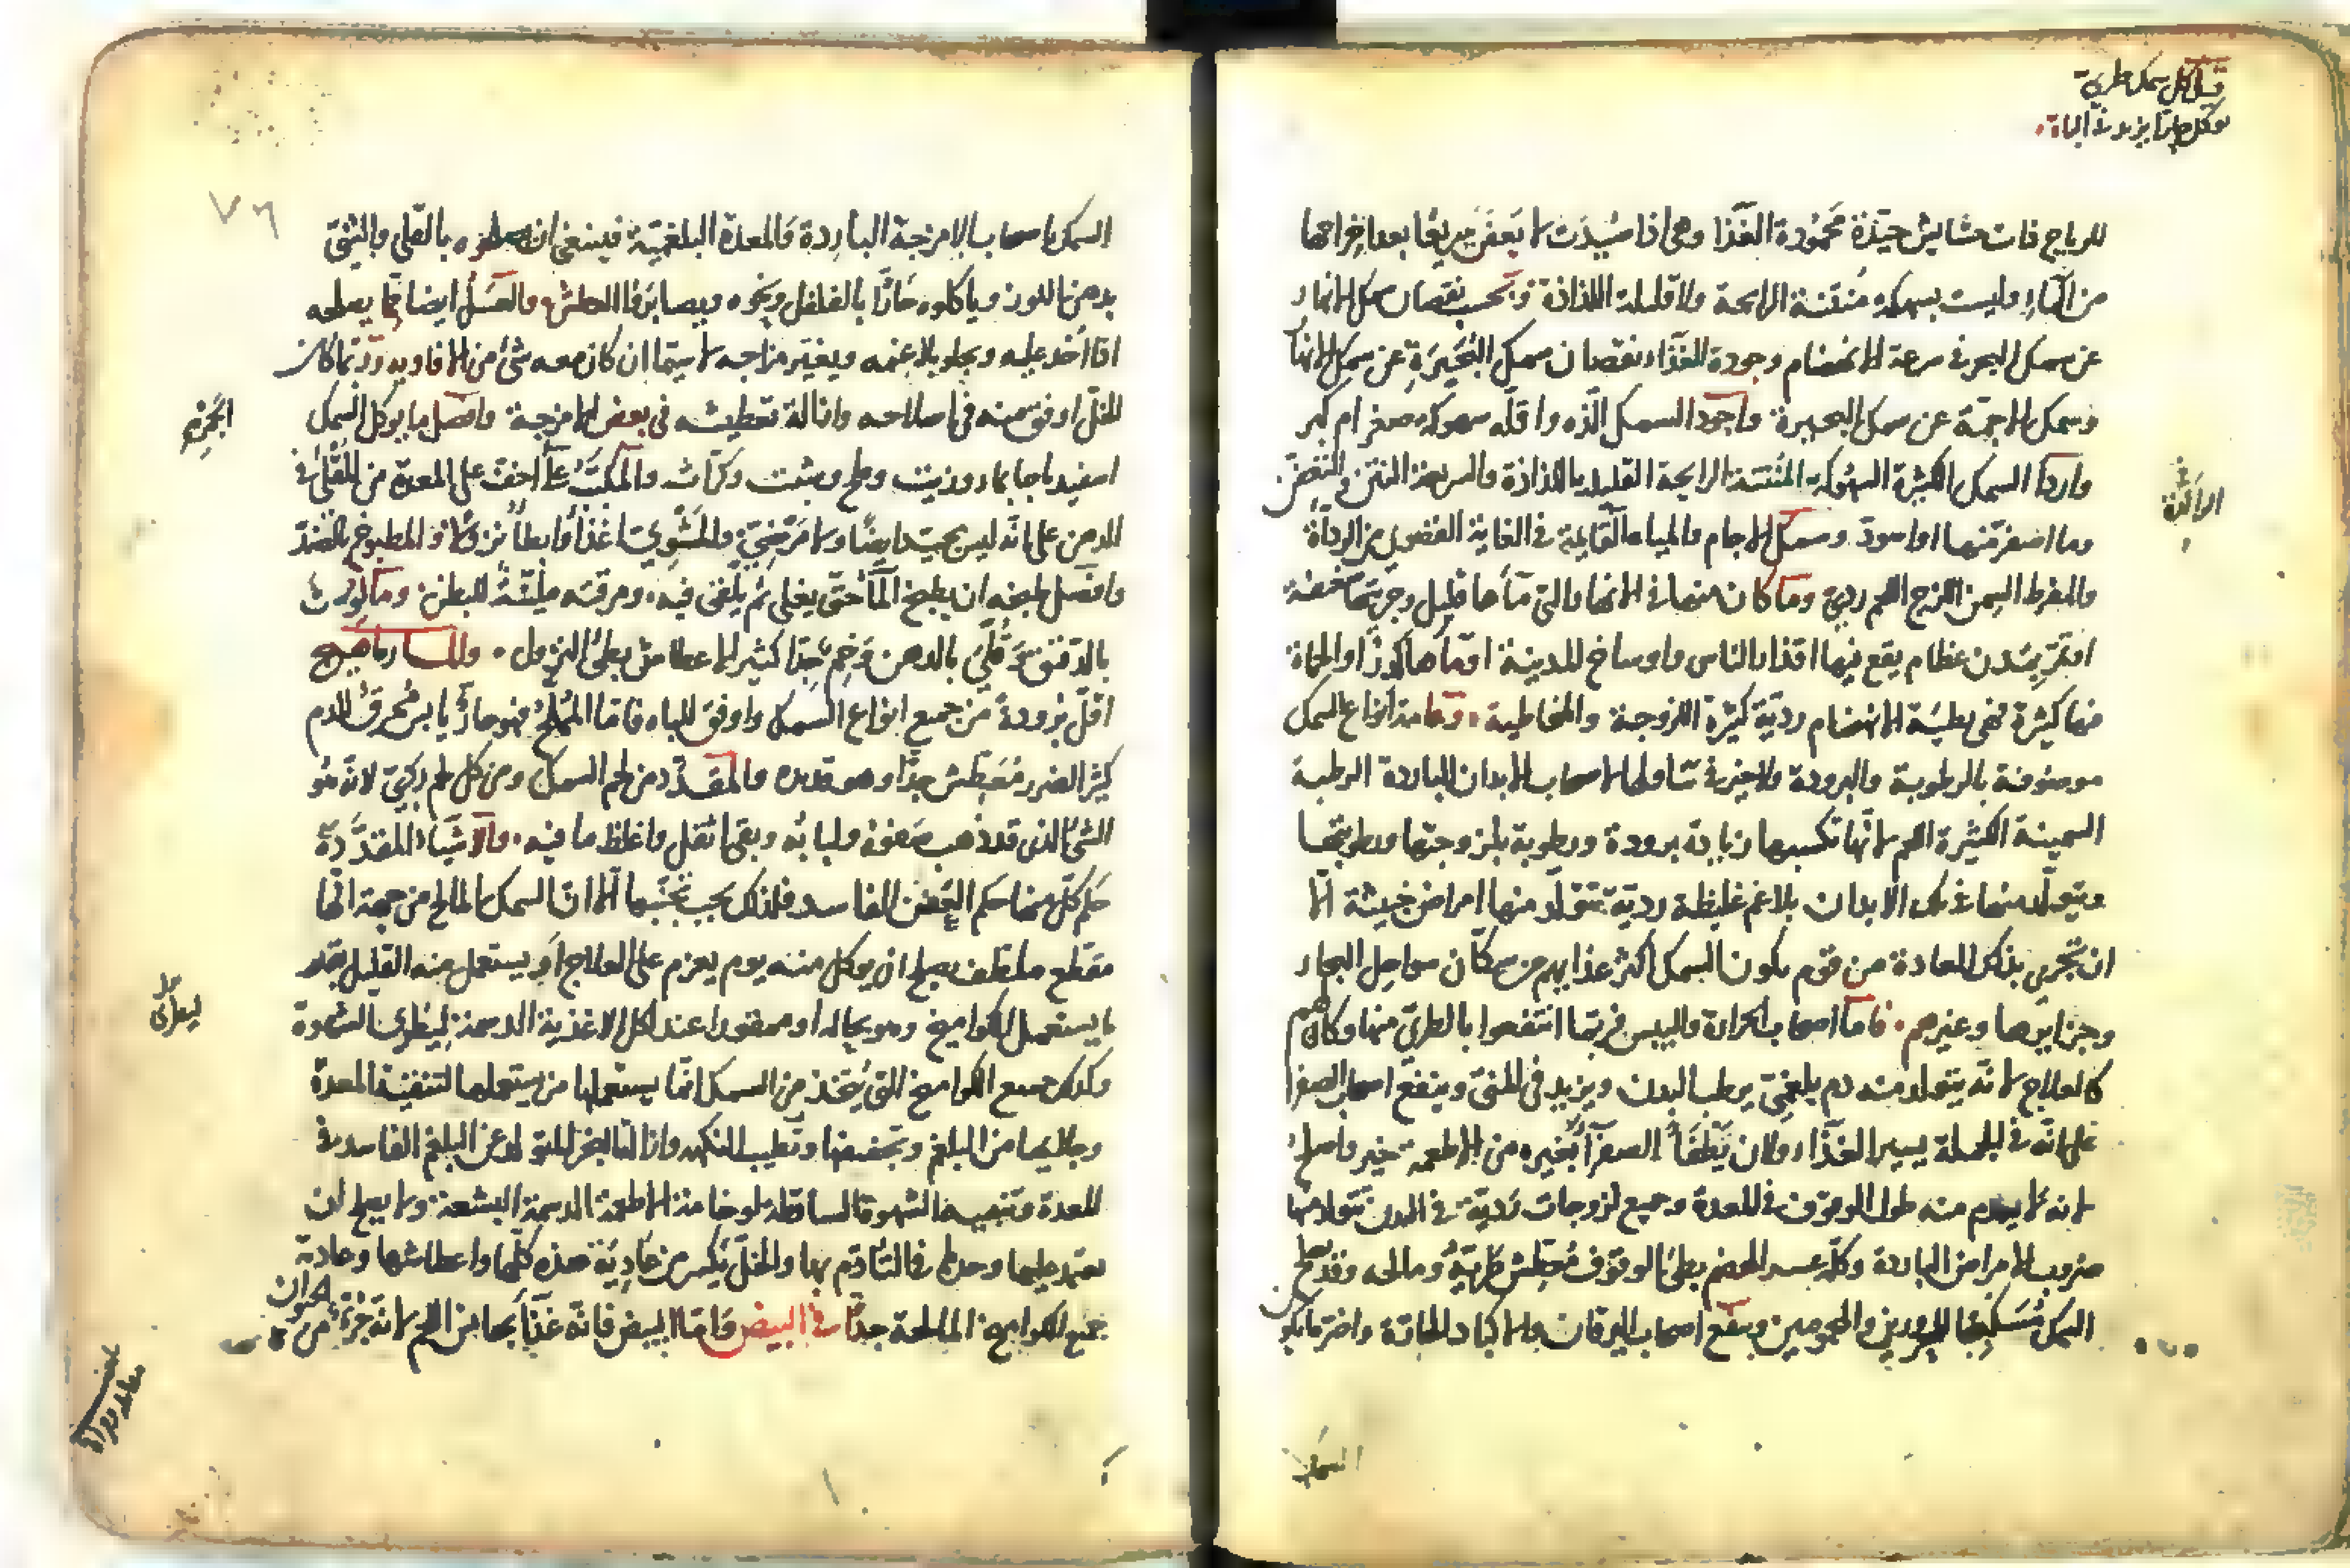 قيل كل سمك طري
يوكل حارّا يزيد في الباه
للرياح ذات حشايش جيّدة محمُودة الغَذا وهي اذا صِيْدَت لا يَعفَن سريعًا بعد اخراجها
من الماءِ وليست بسهكه مُنتنة الرايحة ولا قليلة اللذاذة وبحسب نقصان سمك الانهار
عن سمك البحر في سرعة الانهضام وجودة الغَذاء نقصان سمك البُحَيرَةِ عن سمك الانهار
وسمك الاجمّة عن سمك البحيرة واجود السمك الَذّه واقلّه سهوكه صغر ام كبر
واردا السمك الكثيرة السهُوكه المُنتنة الرايحة القليله اللذاذة والسريعة النتن في التعَفّن
الرايحَة
وما اصفرّ منها او اسودّ وسمك الاجام والمياه القَايمة في الغاية القصوى من الرداَة
والمفرط السِمن اللزج اللحم ردي وما كان منها في الانهار التي ماَها قليل وجريتها ضعيفة
او بقرب مُدن عظام يقع فيها اقذار الناس واوساخ المدينة او ماَها كدرًا والحماة
فيها كثيرة فهي بطيَة الانهضام رديّة كثيرة اللزوجة والمخاطية وعامة انواع السمك
موصوفة بالرطوبة والبرودة ولا خير في تناولها لاصحاب الابدان الباردة الرطبة
السمينة الكثيرة اللحم لانّها تكسبها زيادة برودة ورطوبة بلزوجتها ورطوبتها
ويتولّد منها في تلك الابدان بلاغم غليظة رديّة تتولّد منها امراض خبيثة الّا
ان تجري بذلك العادة من قوم يكون السمك اكثر غذايهم من سكّان سواحل البحار
وجزايرها وغيرهم فاما اصحاب الحرارة واليبس فربّما انتفعوا بالطريّ منها وكان لهم
كالعلاج لانّه يتولد منه دم بلغميّ يرطب البدن ويزيد في المني وينفع اصحاب الصفرا
على انّه في الجملة يسير الغذَاء ولان يَطفَأ الصفرَآ بغيره من الاطعمة خير واصلح
لانه لا يعدم منه طول الوقوف في المعدة وجميع لزوجات رَديّة في البدن تتولد منها
ضروب الامراض الباردة وكلّه عسر الهضم بطئ الوقوف مُعطِش طريّه ومالحه وقد يصلح
السمك للمحرورين والمحمومين وينفع اصحاب اليرقان والاكباد الحارّة واضر ما يكون
السمك
٧٦
السمك باصحاب الامزجة الباردة والمعدة البلغميّة فينبغي ان يصلحوه بالقلي والشيّ
بدهن اللوز وياكلوه حَارًّا بالفلفل ونحوه ويصابروا العطش والعسَل ايضا ممّا يصلحه
اذا اُخذ عليه ويجلو بلاغمه ويغيّر مزاجه لا سيّما ان كان معه شئ من الافاويه وربّما كان
الخل اوفق منه في اصلاحه وازالة تعطيشه في بعض الامزجة وافضل ما يوكل السمك
اسفيدباجا بماء وزيت وملح وشبت وكرّاث والمكبّب اخفّ على المعدة من المقلي في
الدهن على انّه ليس بجيّد ايضًا ولا مرضيّ والمشويّ اغذَا وابطا نزولا والمطبوخ بالضدّ
وافضل طبخه ان يطبخ المآ حتّى يغلي ثمّ يلقى فيه ومرقته مليّنةٌ للبطن وما لوّث
بالدقيق وقُليَ بالدهن وَخِم جدّا كثير الاعطاش بطئ النزول والمارماهيج
اقلّ برودةً من جميع انواع السمك واوفق للباه فاما المملّح فهو حارّ يابس مُحرق للدم
كثير الضرر مُعطش جدًّا وهو قديده والمقدّد من لحم السمك ومن كل لحم ردّيَ لانّه هو
الشئ الذي قد ذهب صَفوهُ ولبابُه وبقي اثقل واغلظ ما فيه والاشيَاء المقدّدة
حكم كلّ منها حكم العَفِن الفاسد فلذلك يجب تجنّبها الّا ان السمك المالح من جهة انّها
مقطع ملطف يصلح ان يوكل منه يوم يعزم على العلاج او يستعمل منه القليل بقدر
ما يستعمل الكواميخ وهو بحاله او ممقورا عند اكل الاغذية الدسمة ليطرّي الشهوة
وكذلك جميع الكواميخ التي يُتخذ من السمك انّما يستعملها من يستعملها لتنقية المعدة
وجلايها من البلغم وتجفيفها وتطييب النكهه وازالة البخر المتولد عن البلغم الفاسد في
المعدة وتنبيه الشهوة الساقطة من الاطعمة الدسمة البشعة ولا يصلح ان
يعتمد عليها وحدها في التأدّم بها والخلّ يكسر من عَادِيَة هذه كلّها واعطاشها وعادية
جميع الكواميخ المالحة جدًّا في البيض فَامّا البيض فانّه غذآ بها من اللحم لانّه جُزء من
الحيوان